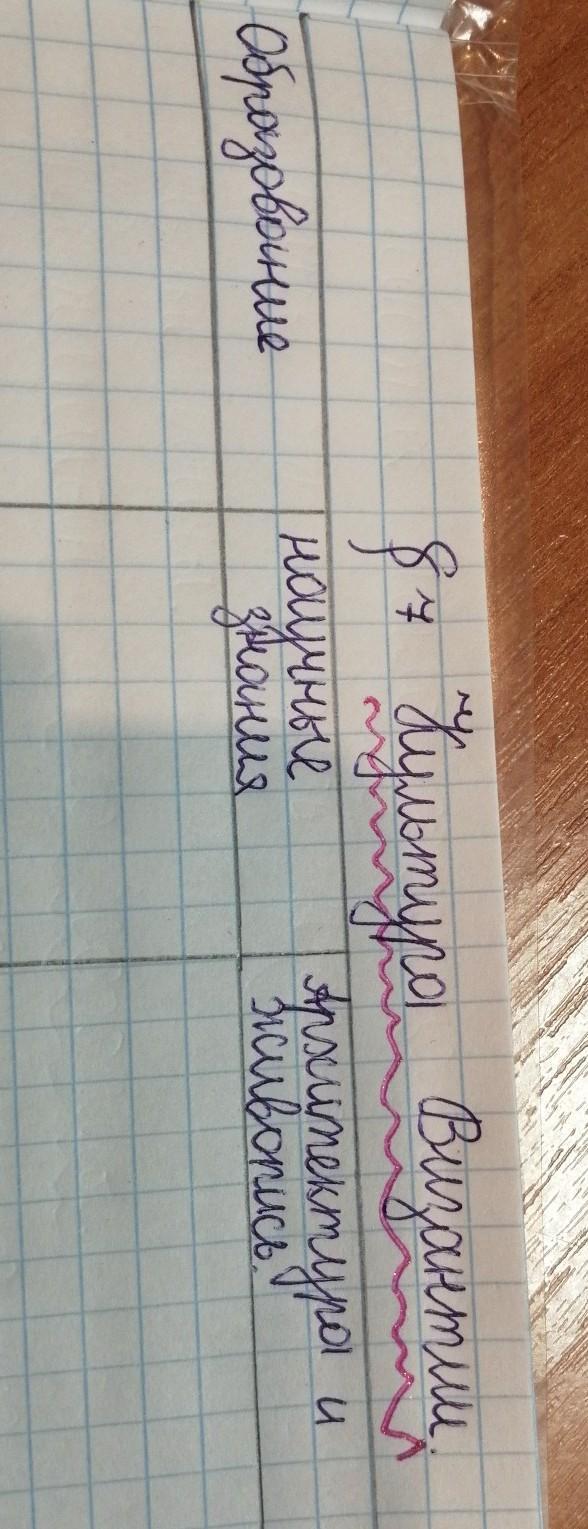 § 7 Культура Византии.
Образование
научные
знания
Архитектура и
живопись.